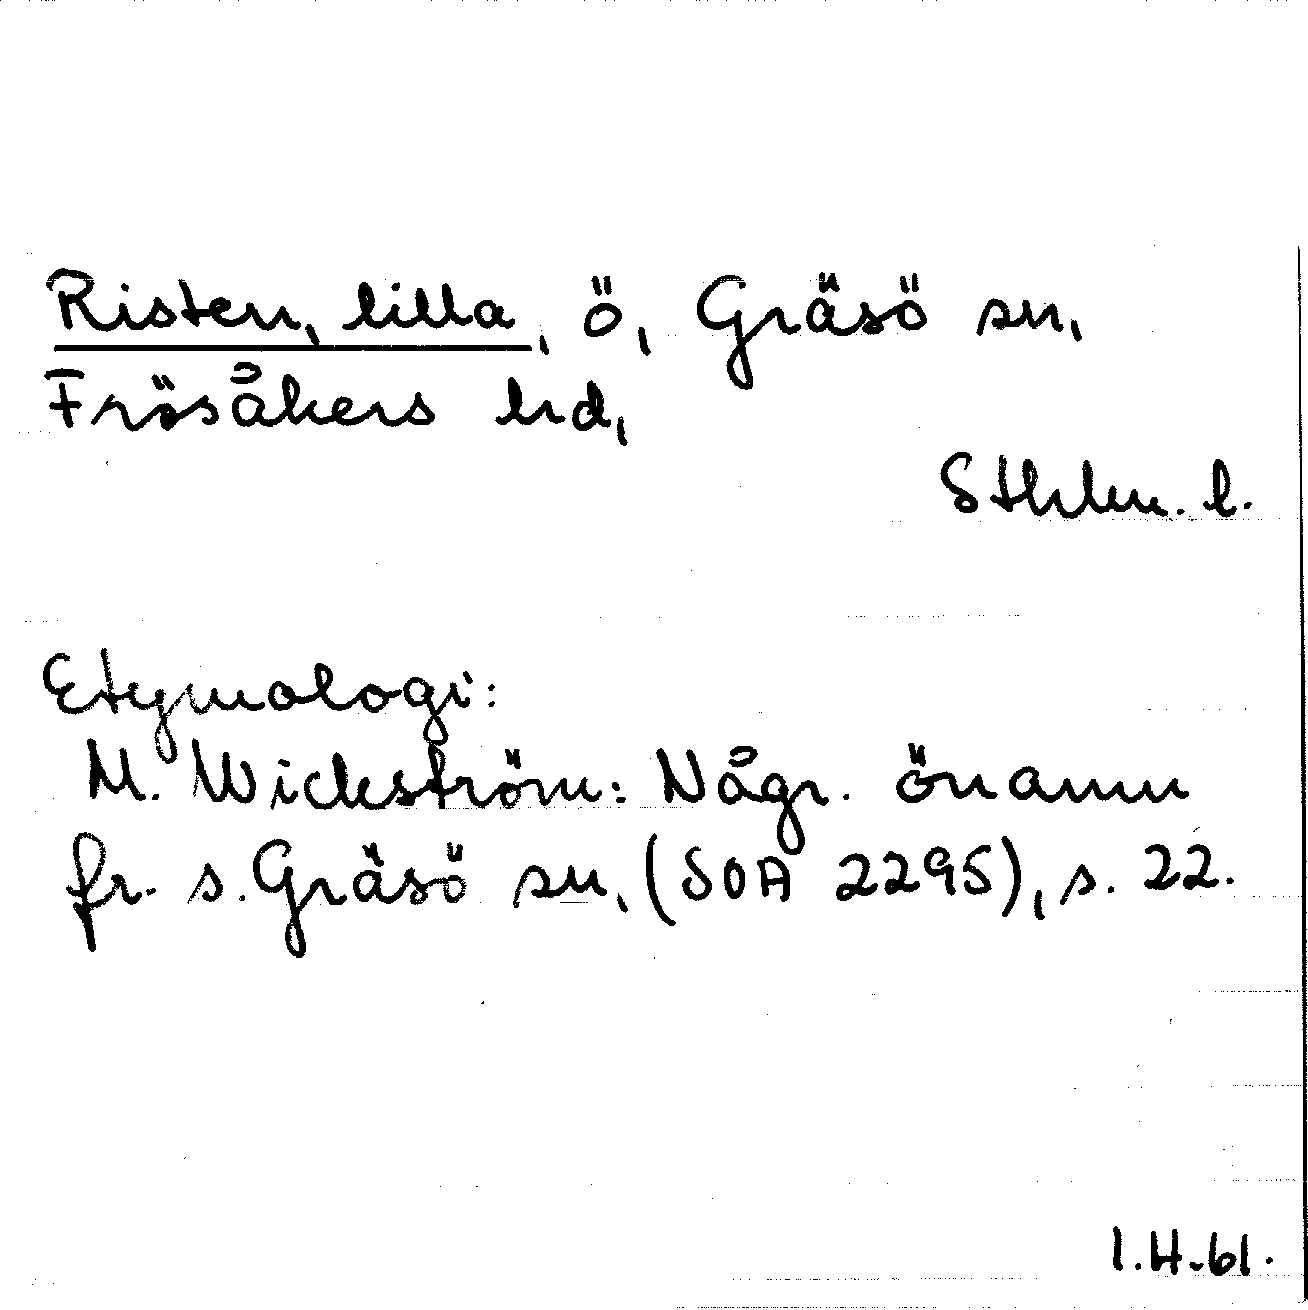 Risten, lilla, ö, Gräsö sn,
Frösåkers hrd,
Sthlm. l.
Etymologi:
M. Wickström: Någr. önamn
fr. s. Gräsö sn, (SOA 2295), s. 22.
I.H.61.